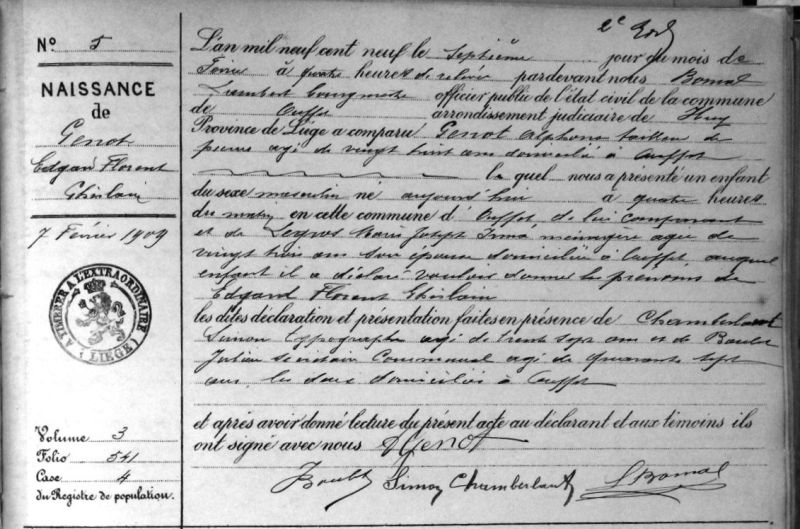 Nº 5
NAISSANCE
de
Genot
Edgard Florent
Ghislain
7 Février 1909
A TIMBRER A L'EXTRAORDINAIRE
(LIEGE)
Volume 3
Folio 541
Case 4
du Registre de population.
2e
L'an mil neuf cent neuf le septième jour du mois de
Février à quatre heures de relevée pardevant nous Bomal
Lambert bourgmestre officier public de l'état civil de la commune
de Ouffet arrondissement judiciaire de Huy
Province de Liége a comparu Genot Alphonse tailleur de
pierres agé de vingt huit ans domicilié à Ouffet
le quel nous a présenté un enfant
du sexe masculin né aujourd'hui à quatre heures
du matin en cette commune d'Ouffet de lui comparant
et de Legros Marie Joseph Irma ménagère agée de
vingt trois ans son épouse domiciliée à Ouffet, auquel
enfant il a déclaré vouloir donner les prénoms de
Edgard Florent Ghislain
les dites déclaration et présentation faites en présence de Chamberlant
Simon typographe agé de trente sept ans et de Boulet
Julien secrétaire Communal agé de quarante sept
ans, les deux domiciliés à Ouffet
et après avoir donné lecture du présent acte au déclarant et aux témoins ils
ont signé avec nous AGenot
Simon Chamberlant LBomal